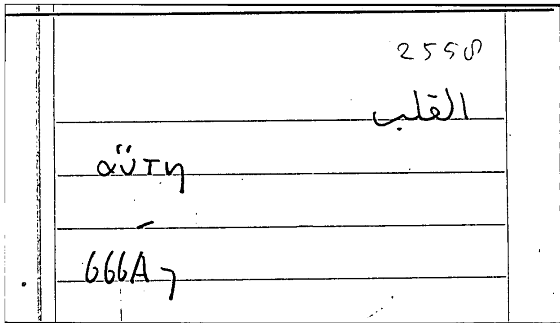 2558
القلب
αϋτη
666A7